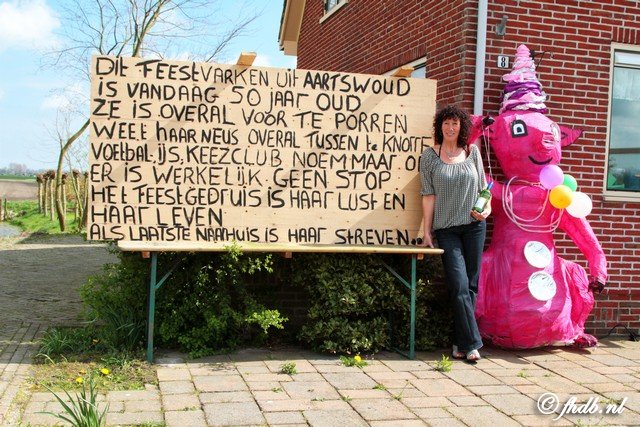 DIT FEESTVARKEN UIT AARTSWOUD
IS VANDAAG 50 JAAR OUD
ZE IS OVERAL VOOR TE PORREN
WEET HAAR NEUS OVERAL TUSSEN te KNOTTE
VOETBAL.IJS, KEEZCLUB NOEM MAAR OP
ER IS WERKELIJK GEEN STOP
HET FEESTGEDRUIS IS HAAR LUST EN
HAAR LEVEN
ALS LAATSTE NAAR HUIS IS HAAR STREVEN..
8
© fhdb.nl